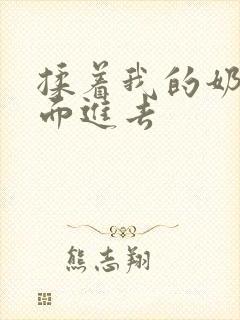 揉着我的奶
而进去
熊志翔